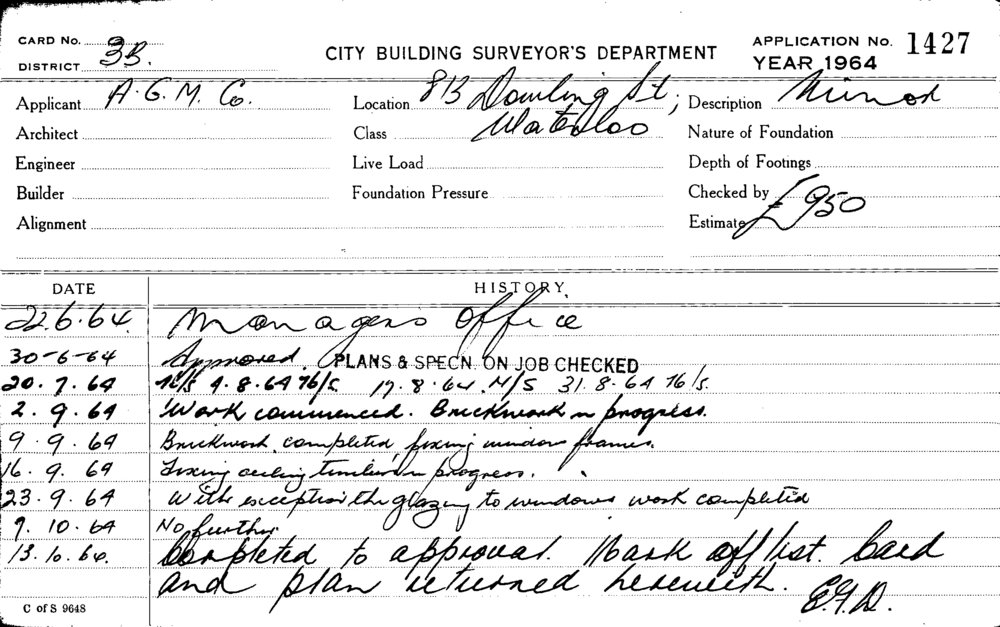 CARD No. 3B.
DISTRICT
CITY BUILDING SURVEYOR'S DEPARTMENT
APPLICATION No. 1427
YEAR 1964
Applicant A.G.M. Co.
Location 813 Dowling St;
Description Minor
Architect
Class Waterloo
Nature of Foundation
Engineer
Live Load
Depth of Footings
Builder
Foundation Pressure
Checked by
Alignment
Estimate £950
DATE HISTORY
22.6.64. Managers office
30-6-64 Approved. PLANS & SPECN. ON JOB CHECKED
20.7.64 N/S 4.8.64 N/S. 17.8.64 N/S 31.8.64 N/S.
2.9.64 Work commenced. Brickwork in progress.
9.9.64 Brickwork completed, fixing window frames.
16.9.64 Fixing ceiling timbers in progress.
23.9.64 With exception the glazing to windows work completed
9.10.64 No further.
13.10.64. Completed to approval. Mark off list. Card
and plan returned herewith.
C of S 9648